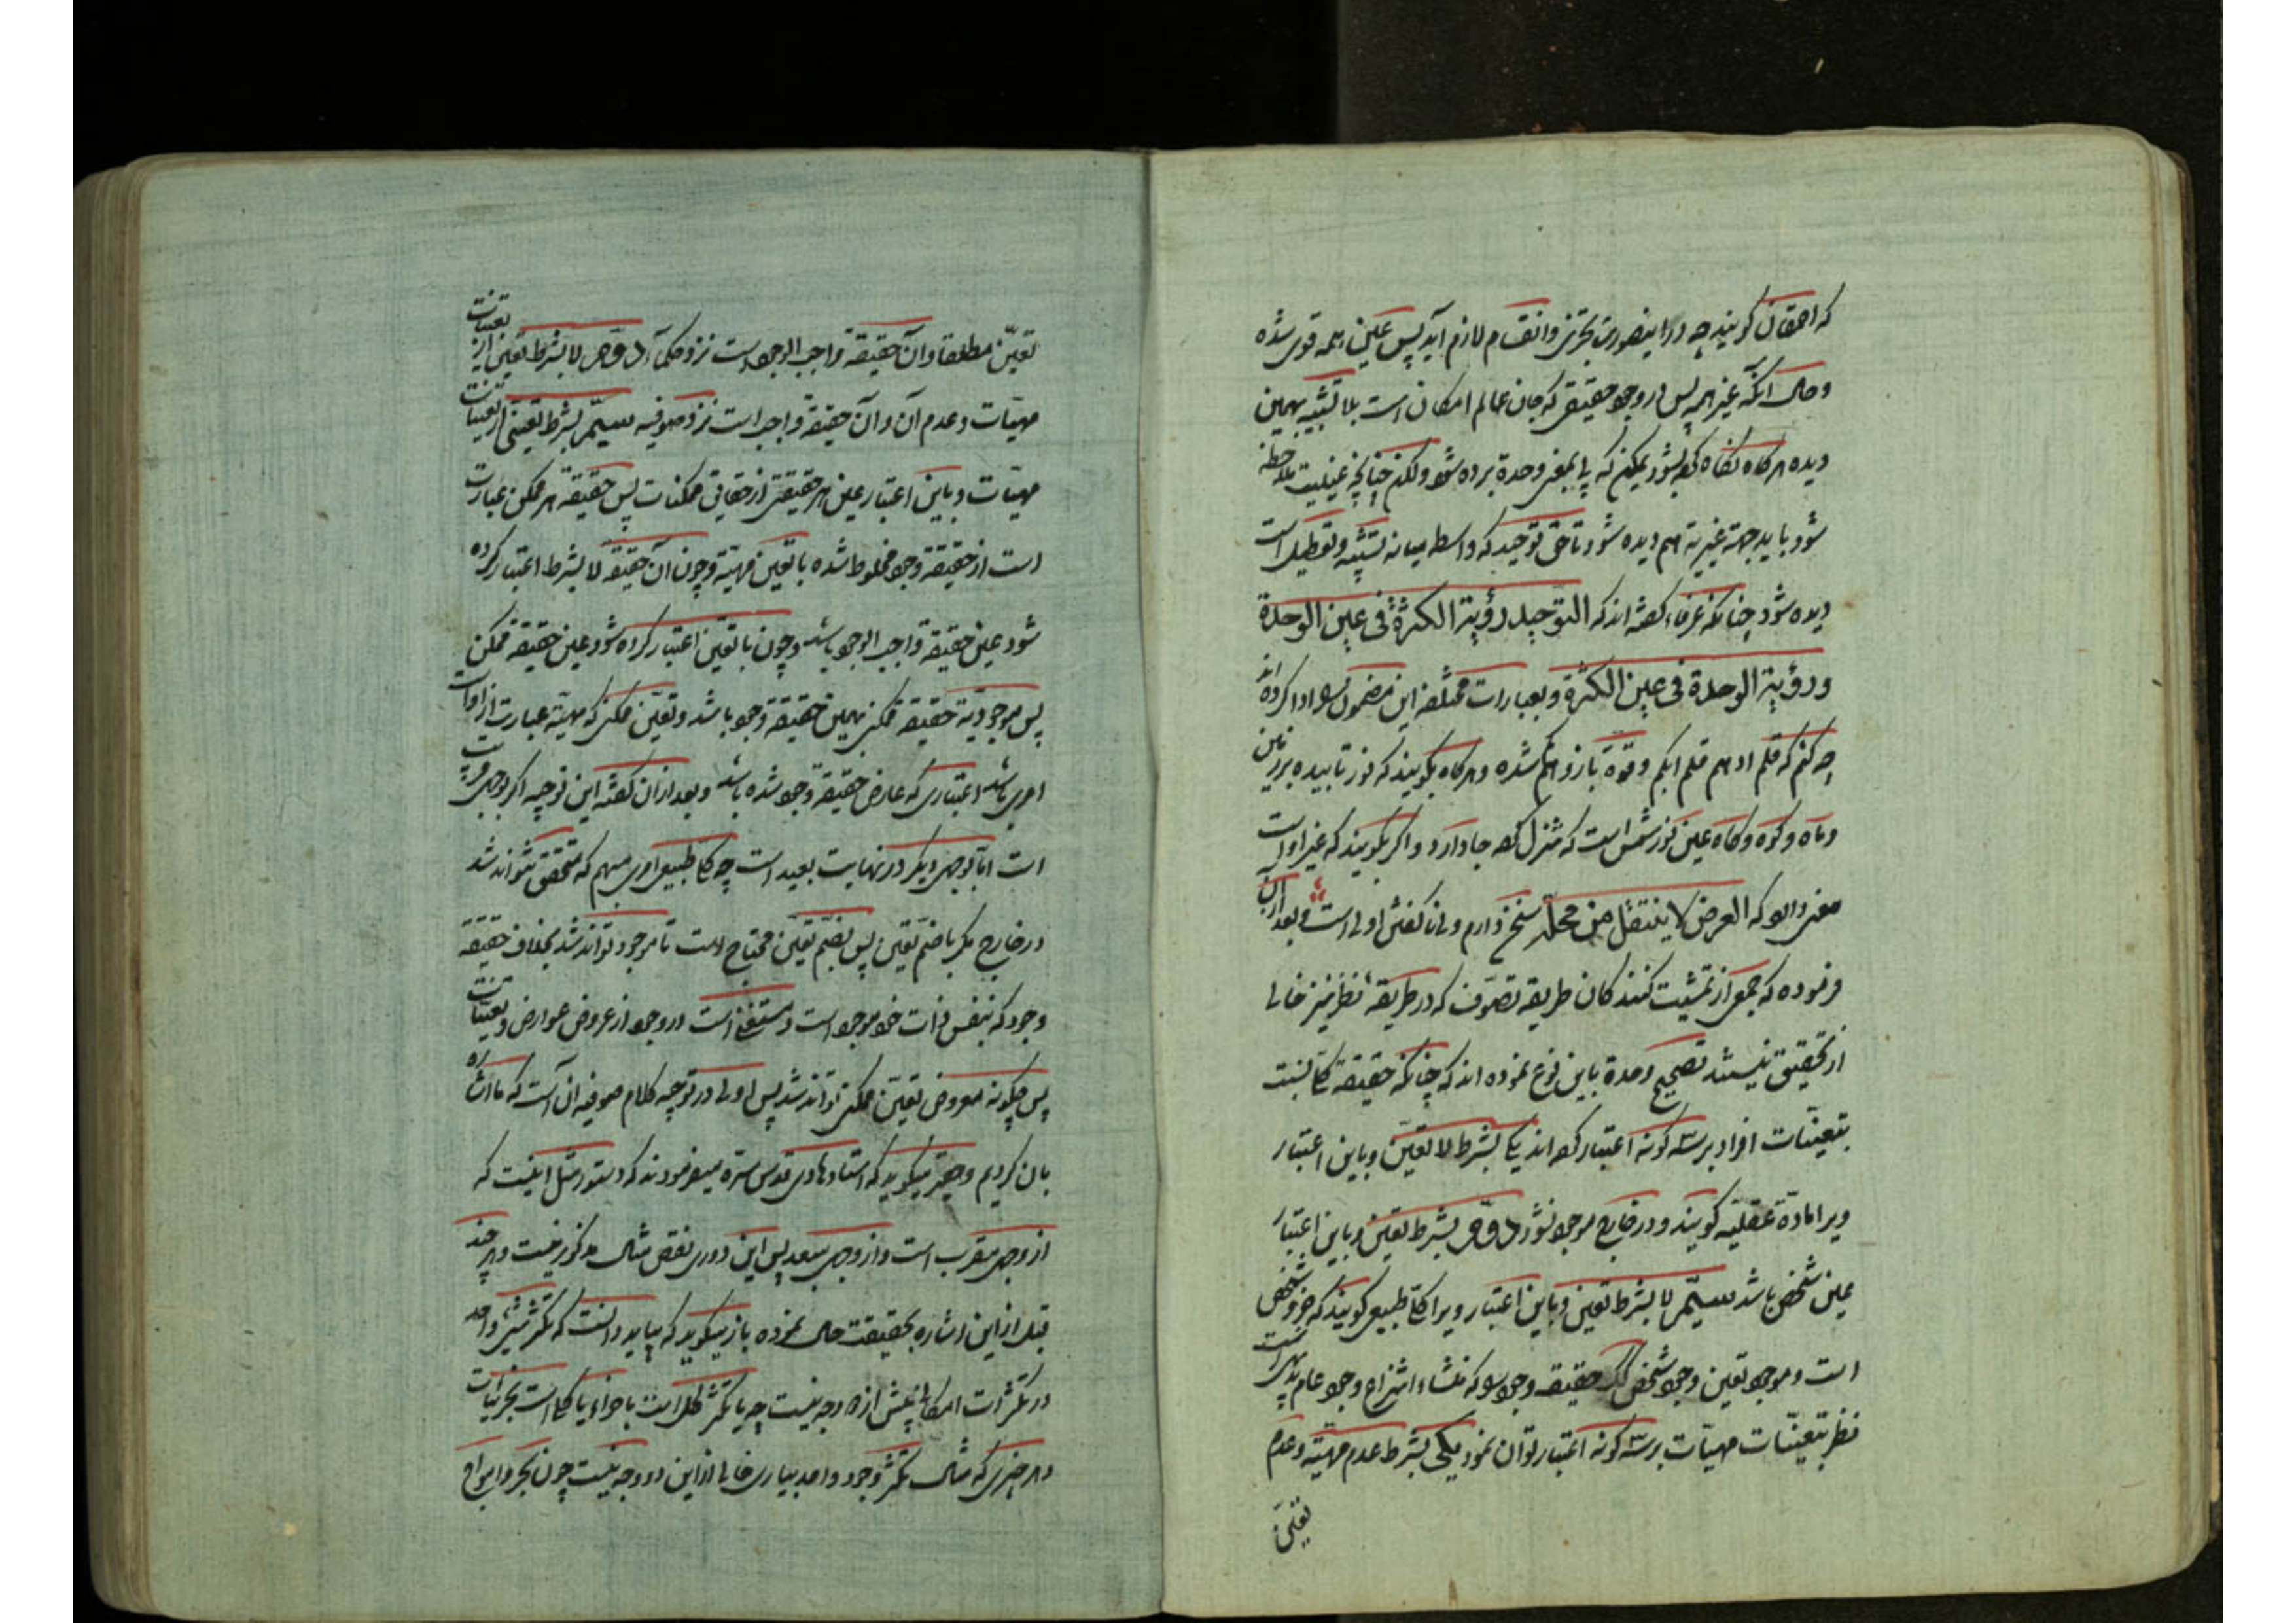 که احمقان گویند چه در اینصورت تجزی وانقسام لازم آید پس عین همه قوی شده
وحال آنکه غیر همه پس در وجود حقیقی که جان عالم امکان است بلا تشبیه بهمین
دیده هرگاه نگاه کرده شود یمکن که پا بمعنی وحدة برده شود ولکن چنانچه عینیت ملاحظه
شود باید جهة غیریة هم دیده شود تا حق توحید که واسطه میانه تشبیه وتعطیل است
دیده شود چنانکه عرفاء گفته اند که التوحید رؤیة الکثرة فی عین الوحدة
ورؤیة الوحدة فی عین الکثرة وبعبارات مختلفه این مضمون را ادا کرده اند
چه کنم که قلم او هم قلم ابکم وقوة بازو هم شده وهرگاه بگویند که نور تابیده بر زمین
وماه وکوه وکاه عین نور شمس است که تنزل کرده جا دارد واگر بگویند که غیر او است
معنی دارد که العرض لا ینتقل من محله سخن دارم ولی ناگفتنش اولی است وبعد از آن
فرموده که جمعی از تمشیت کنندکان طریقه تصوف که در طریقه نظر نیز خالی
از تحقیق نیستند تصحیح وحدة باین نوع نموده اند که چنانکه حقیقة کلی نسبت
بتعینات افراد بر سه کونه اعتبار کرده اند یکی بشرط لا تعین وباین اعتبار
ویرا مادة عقلیه گویند ودر خارج موجود نشود دوم بشرط تعین وباین اعتبار
عین شخص باشد سیم لا بشرط تعین وباین اعتبار ویرا کلی طبیعی گویند که جزو شخص
است وموجود بعین وجود شخص حقیقة وجود را که منشاء انتزاع وجود عام بدیهی است
نظر بتعینات مهیات بر سه کونه اعتبار توان نمود یکی بشرط عدم مهیة وعدم
تعین
تعین مطلقا وآن حقیقة واجب الوجود است نزد حکما دوم لا بشرط تعین از تعینات
مهیات وعدم آن وآن حقیقة واجب است نزد صوفیه سیم بشرط تعینی از تعینات
مهیات وباین اعتبار عین هر حقیقتی از حقایق ممکنات پس حقیقة هر ممکن عبارت
است از حقیقة وجود مخلوط شده با تعین مهیة وچون آن حقیقة لا بشرط اعتبار کرده
شود عین حقیقة واجب الوجود باشد وچون با تعین اعتبار کرده شود عین حقیقة ممکن
پس موجودیة حقیقة ممکن بهمین حقیقة وجود باشد وتعین ممکن که مهیة عبارت از او است
امری باشد اعتباری که عارض حقیقة وجود شده باشد وبعد از آن گفته این توجیه اگر بوجهی قریب
است اما بوجهی دیگر در نهایت بعید است چه کلی طبیعی امری مبهم که متحقق نتواند شد
در خارج مگر با ضم تعین پس بضم تعین محتاج است تا موجود تواند شد بخلاف حقیقة
وجود که بنفس ذات خود موجود است ومستغنی است در وجود از عروض عوارض وتعینات
پس چگونه معروض تعین ممکن تواند شد پس اولی در توجیه کلام صوفیه آن است که ما اشاره
بان کردیم وحقیر میگوید که استاد هادی قدس سره میفرمودند که دستور مثل اینست که
از وجهی مقرب است واز وجهی مبعد پس این دوری نقص مثال مذکور نیست وهر چند
قبل از این اشاره بحقیقت حال نموده باز میگوید که بباید دانست که تکثر شیء واحد
در تکثرات امکانی بیش از دو وجه نیست چه یا تکثر کل است باجزاء یا کلی است بجزئیات
وهر چیزی که مثال تکثر وجود واحد بیاری خالی از این دو وجه نیست چون بحر وامواج